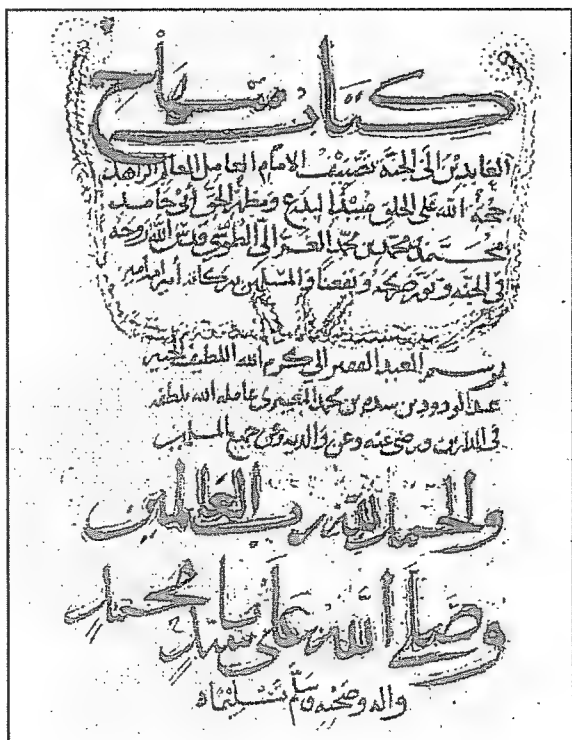 كتاب منهاج
العابدين الى الجنة تصنيف الامام العامل العالم الزاهد
حجة الله على الخلق مبتدا لبدع ومظهر الحق أبي حامد
محمد بن محمد بن محمد الغزالي الطوسي قدس الله روحه
في الجنة ونور ضريحه ونفعنا والمسلمين ببركاته أمين
برسم العبد الفقير الي كرم الله اللطيف الخبير
عبد الودود بن محمد عامله الله بلطفه
في الدارين ورضي عنه وعن والديه وعن جميع المسلمين
والحمد لله رب العالمين
وصلى الله على سيدنا محمد
واله وصحبه وسلم تسليما